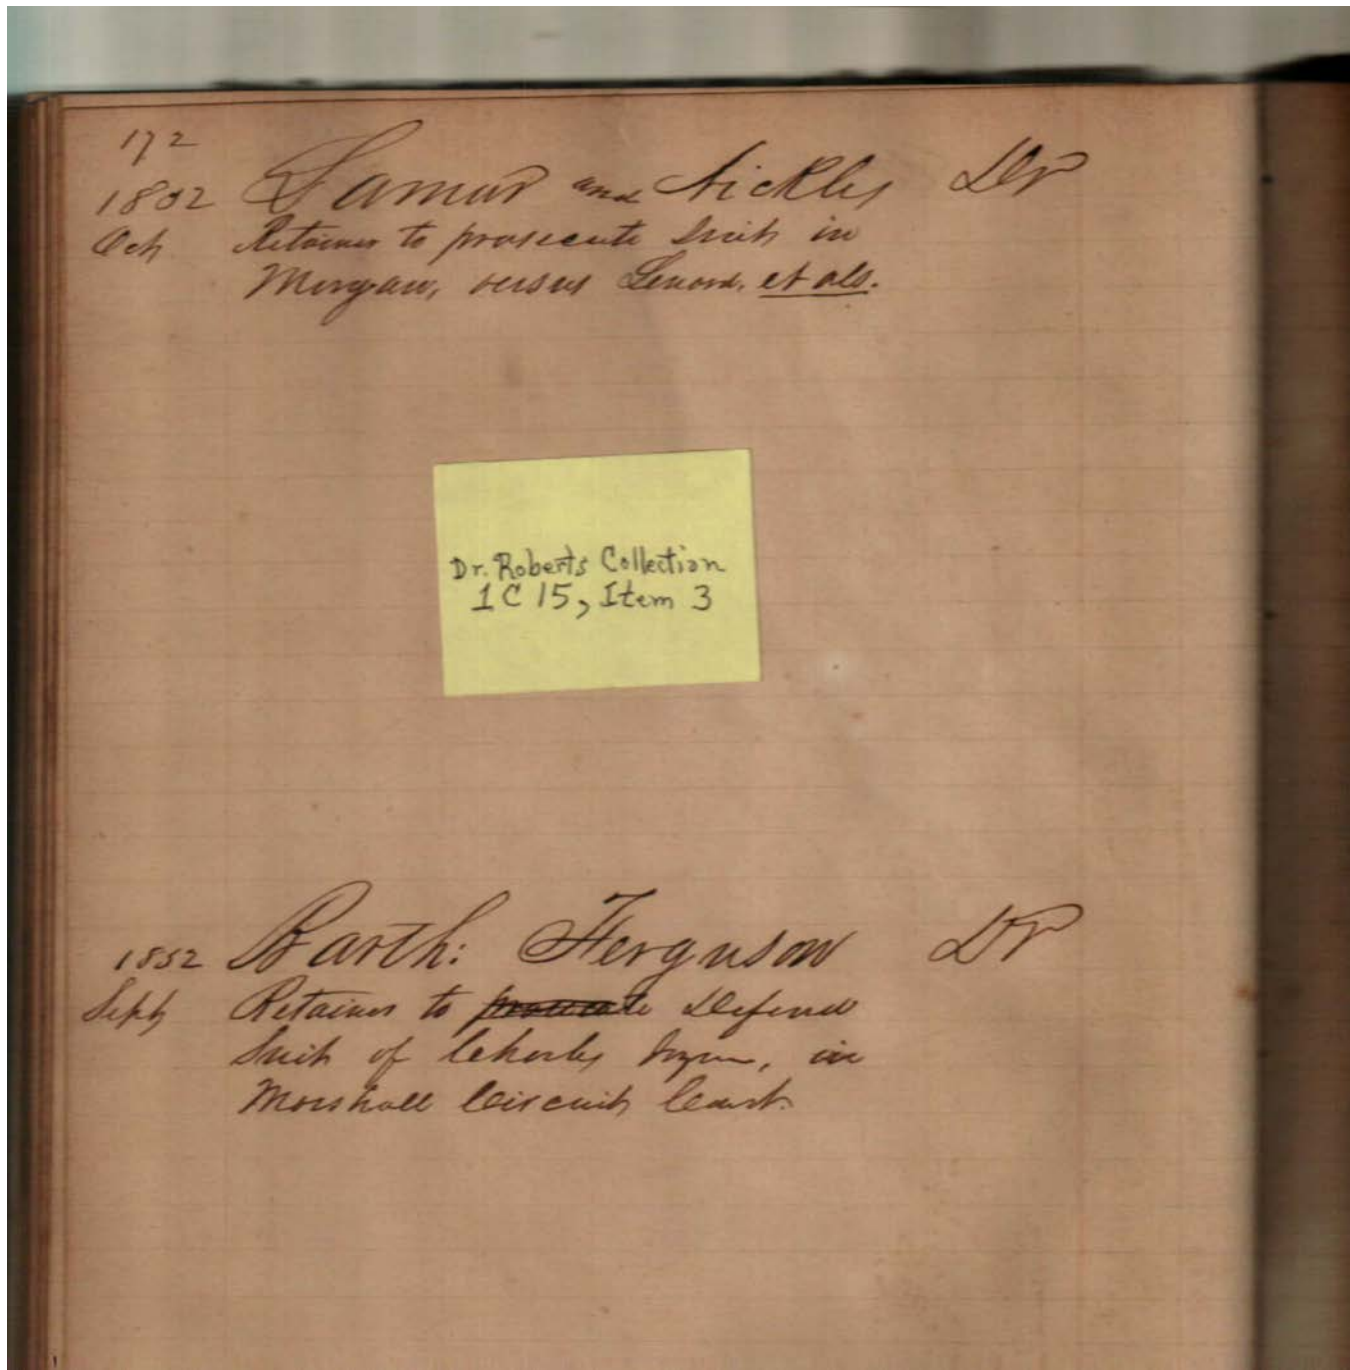 172
1852 Lamar and Nickles Dr
Oct Retainer to prosecute Suit in
Morgan, versus et als.
Dr. Roberts Collection
1C15, Item 3
1852 Barth: Ferguson Dr
Sept Retainer to prosecute Defend
Suit of Charles in
Marshall Circuit Court.